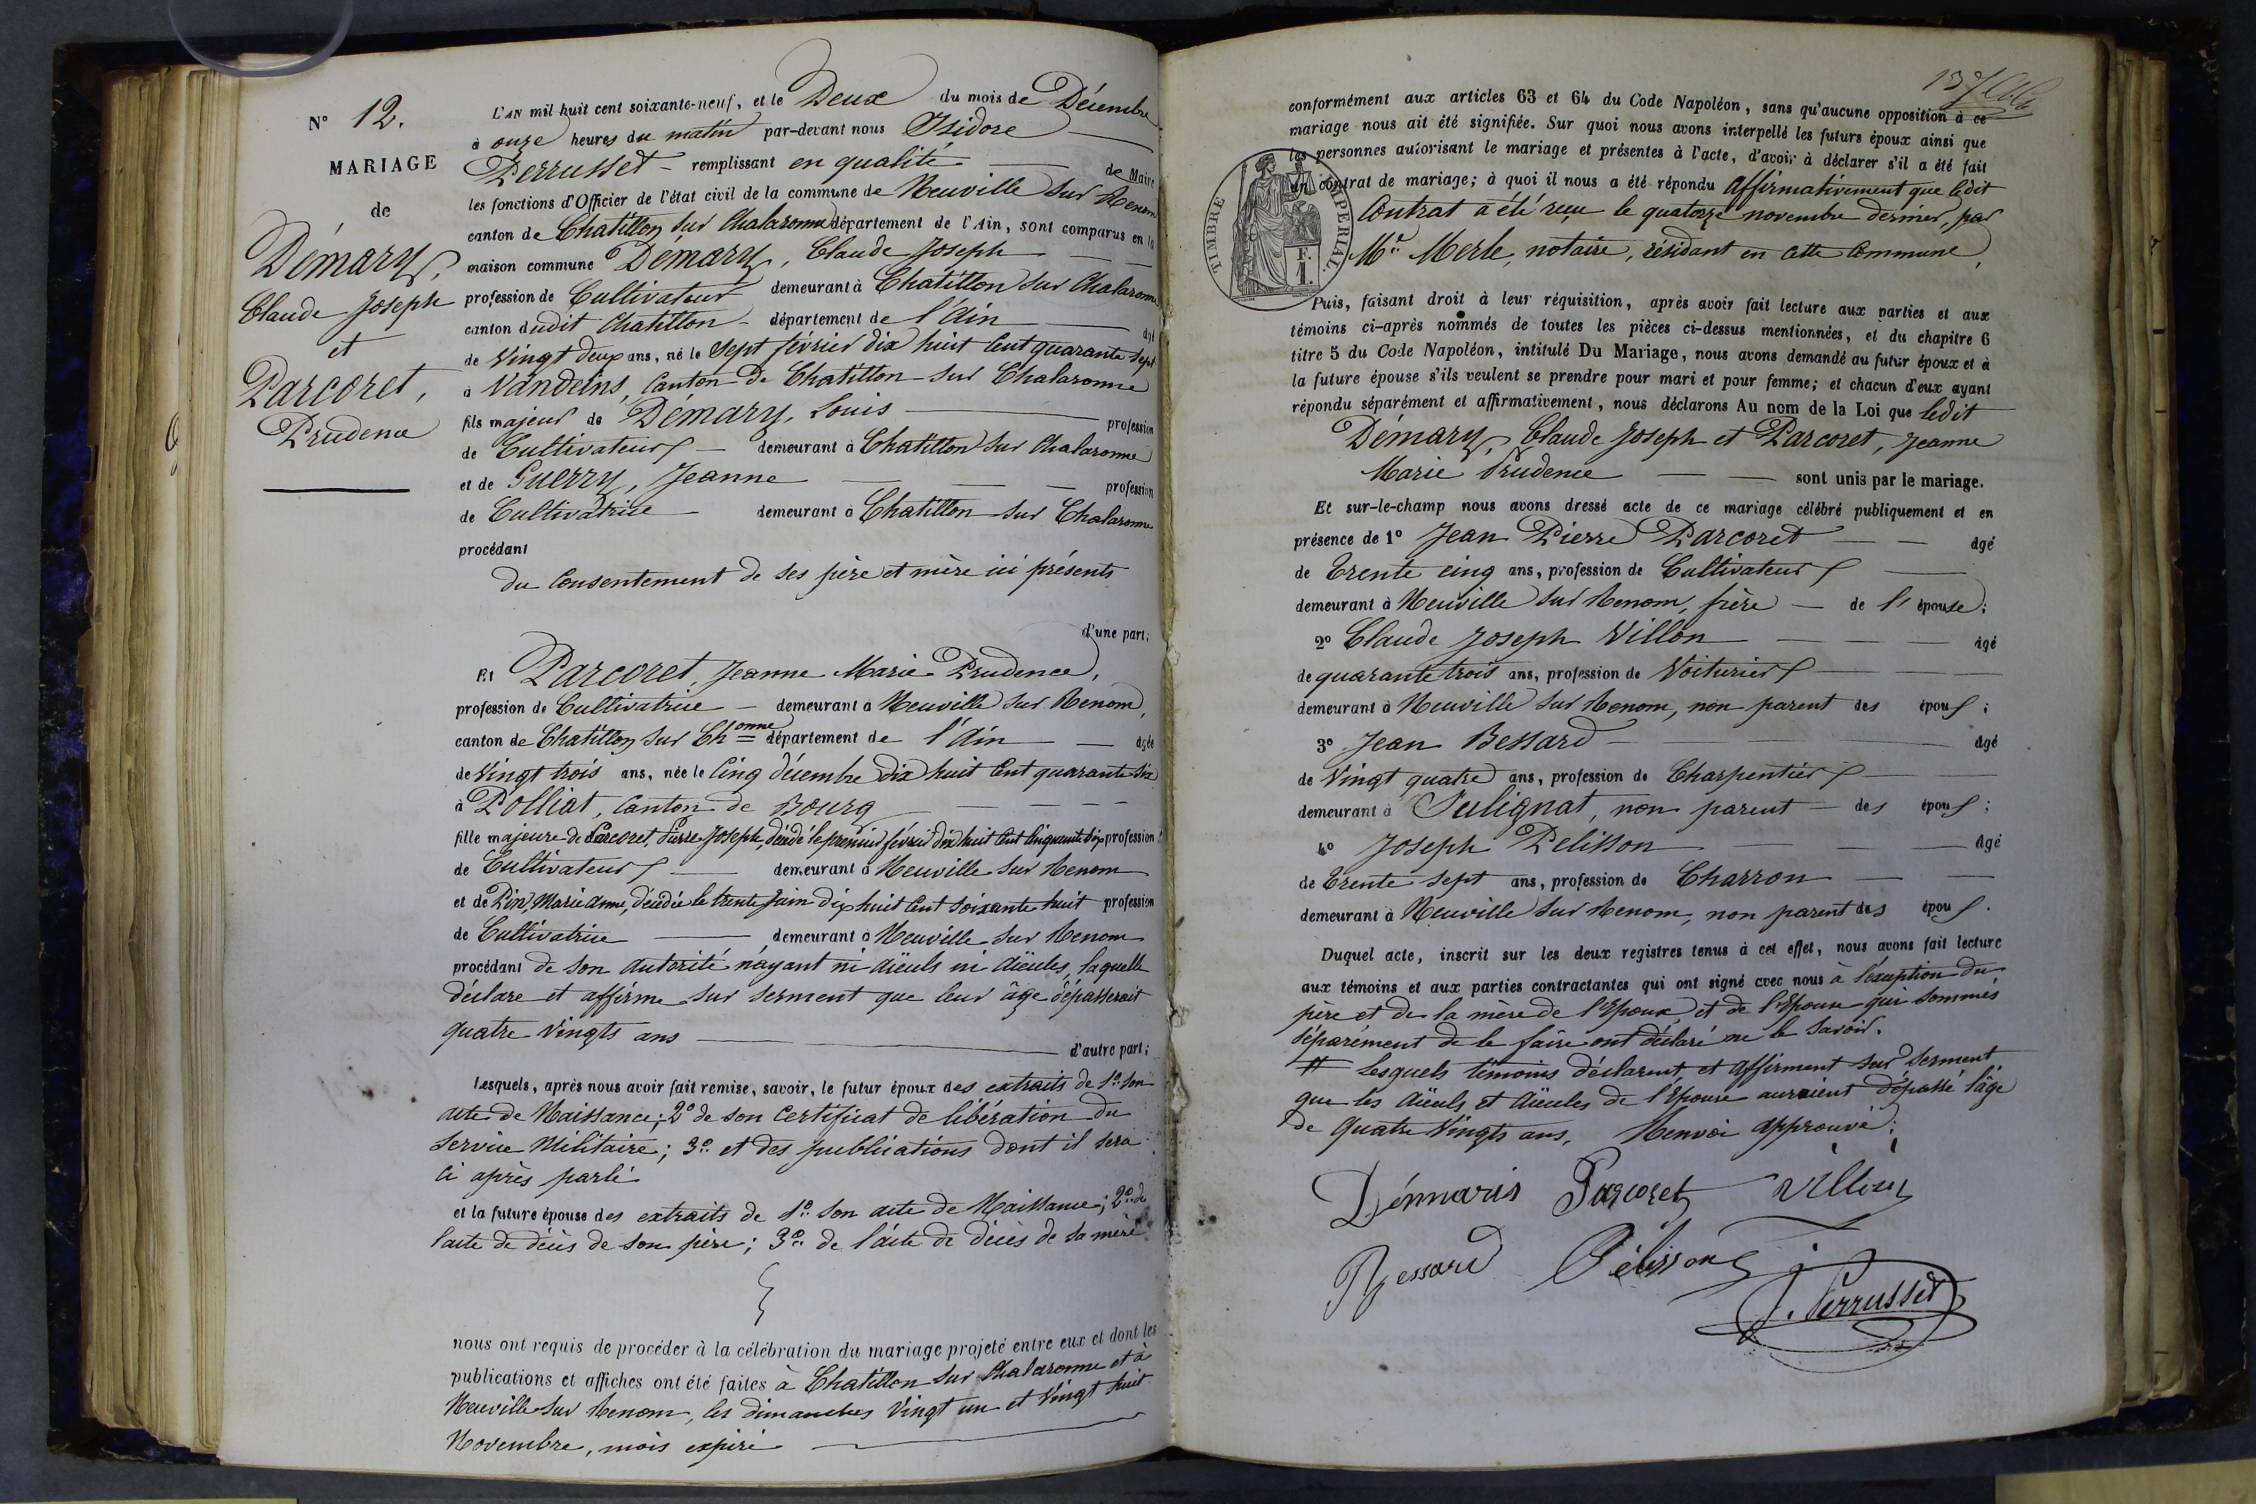 N° 12.
MARIAGE
de
Démary,
Claude Joseph
et
Parcoret,
Prudence
L'AN mil huit cent soixante-neuf, et le Deux du mois de Décembre
à onze heures du matin par-devant nous Isidore
Perrusset - remplissant en qualité de Maire
les fonctions d'Officier de l'état civil de la commune de Neuville sur Renom
canton de Chatillon sur Chalaronne département de l'Ain, sont comparus en la
maison commune Démary, Claude Joseph
profession de Cultivateur demeurant à Chatillon sur Chalaronne
canton dudit Chatillon - département de l'Ain âgé
de Vingt deux ans, né le Sept février dix huit Cent quarante Sept
à Vandeins, Canton de Chatillon sur Chalaronne
fils majeur de Démary, Louis profession
de Cultivateur demeurant à Chatillon sur Chalaronne
et de Guerry, Jeanne profession
de Cultivatrice demeurant à Chatillon sur Chalaronne
procédant
du Consentement de ses père et mère ici présents
d'une part;
Et Parcoret, Jeanne Marie Prudence,
profession de Cultivatrice - demeurant à Neuville sur Renom,
canton de Chatillon sur Chonne département de l'Ain âgée
de Vingt trois ans, née le Cinq décembre dix huit Cent quarante Six
à Polliat, Canton de Bourg
fille majeure de Parcoret, Pierre Joseph, décédé le premier février dix huit Cent Cinquante Six profession
de Cultivateur demeurant à Neuville sur Renom
et de Pin, Marie Anne, décédée le trente Juin dix huit Cent Soixante huit profession
de Cultivatrice demeurant à Neuville sur Renom
procédant de son autorité n'ayant ni aïeuls ni aïeules, laquelle
déclare et affirme sur serment que leur âge dépasserait
quatre Vingts ans d'autre part;
Lesquels, après nous avoir fait remise, savoir, le futur époux des extraits de 1° son
acte de Naissance; 2° de son Certificat de libération du
Service Militaire; 3° et des publications dont il sera
ci après parlé
et la future épouse des extraits de 1° son acte de Naissance; 2° de
l'acte de décès de son père; 3° de l'acte de décès de sa mère
nous ont requis de procéder à la célébration du mariage projeté entre eux et dont les
publications et affiches ont été faites à Chatillon sur Chalaronne et à
Neuville sur Renom, les dimanches Vingt un et Vingt huit
Novembre, mois expiré
conformément aux articles 63 et 64 du Code Napoléon, sans qu'aucune opposition à ce
mariage nous ait été signifiée. Sur quoi nous avons interpellé les futurs époux ainsi que
les personnes autorisant le mariage et présentes à l'acte, d'avoir à déclarer s'il a été fait
un contrat de mariage; à quoi il nous a été répondu affirmativement que ledit
Contrat a été reçu le quatorze novembre dernier, par
Me Merle, notaire, résidant en cette Commune,
TIMBRE IMPERIAL.
F.
1.
Puis, faisant droit à leur réquisition, après avoir fait lecture aux parties et aux
témoins ci-après nommés de toutes les pièces ci-dessus mentionnées, et du chapitre 6
titre 5 du Code Napoléon, intitulé Du Mariage, nous avons demandé au futur époux et à
la future épouse s'ils veulent se prendre pour mari et pour femme; et chacun d'eux ayant
répondu séparément et affirmativement, nous déclarons Au nom de la Loi que ledit
Démary, Claude Joseph et Parcoret, Jeanne
Marie Prudence sont unis par le mariage.
Et sur-le-champ nous avons dressé acte de ce mariage célébré publiquement et en
présence de 1° Jean Pierre Parcoret âgé
de Trente cinq ans, profession de Cultivateur
demeurant à Neuville sur Renom, frère - de l'épouse;
2° Claude Joseph Villon âgé
de quarante trois ans, profession de Voiturier
demeurant à Neuville sur Renom, non parent des époux;
3° Jean Bessard âgé
de Vingt quatre ans, profession de Charpentier
demeurant à Sulignat, non parent - des époux;
4° Joseph Pelisson âgé
de Trente sept ans, profession de Charron
demeurant à Neuville sur Renom, non parent des époux.
Duquel acte, inscrit sur les deux registres tenus à cet effet, nous avons fait lecture
aux témoins et aux parties contractantes qui ont signé avec nous à l'éxception du
père et de la mère de l'Epoux, et de l'Epouse qui sommés
séparément de le faire ont déclaré ne le savoir.
# Lesquels témoins déclarent et affirment sur serment
que les Aïeuls et Aïeules de l'Epouse auraient dépassé l'âge
de Quatre Vingts ans, Renvoi approuvé;
Démaris Parcoret Villon
Bessard Pélisson
J. Perrusset